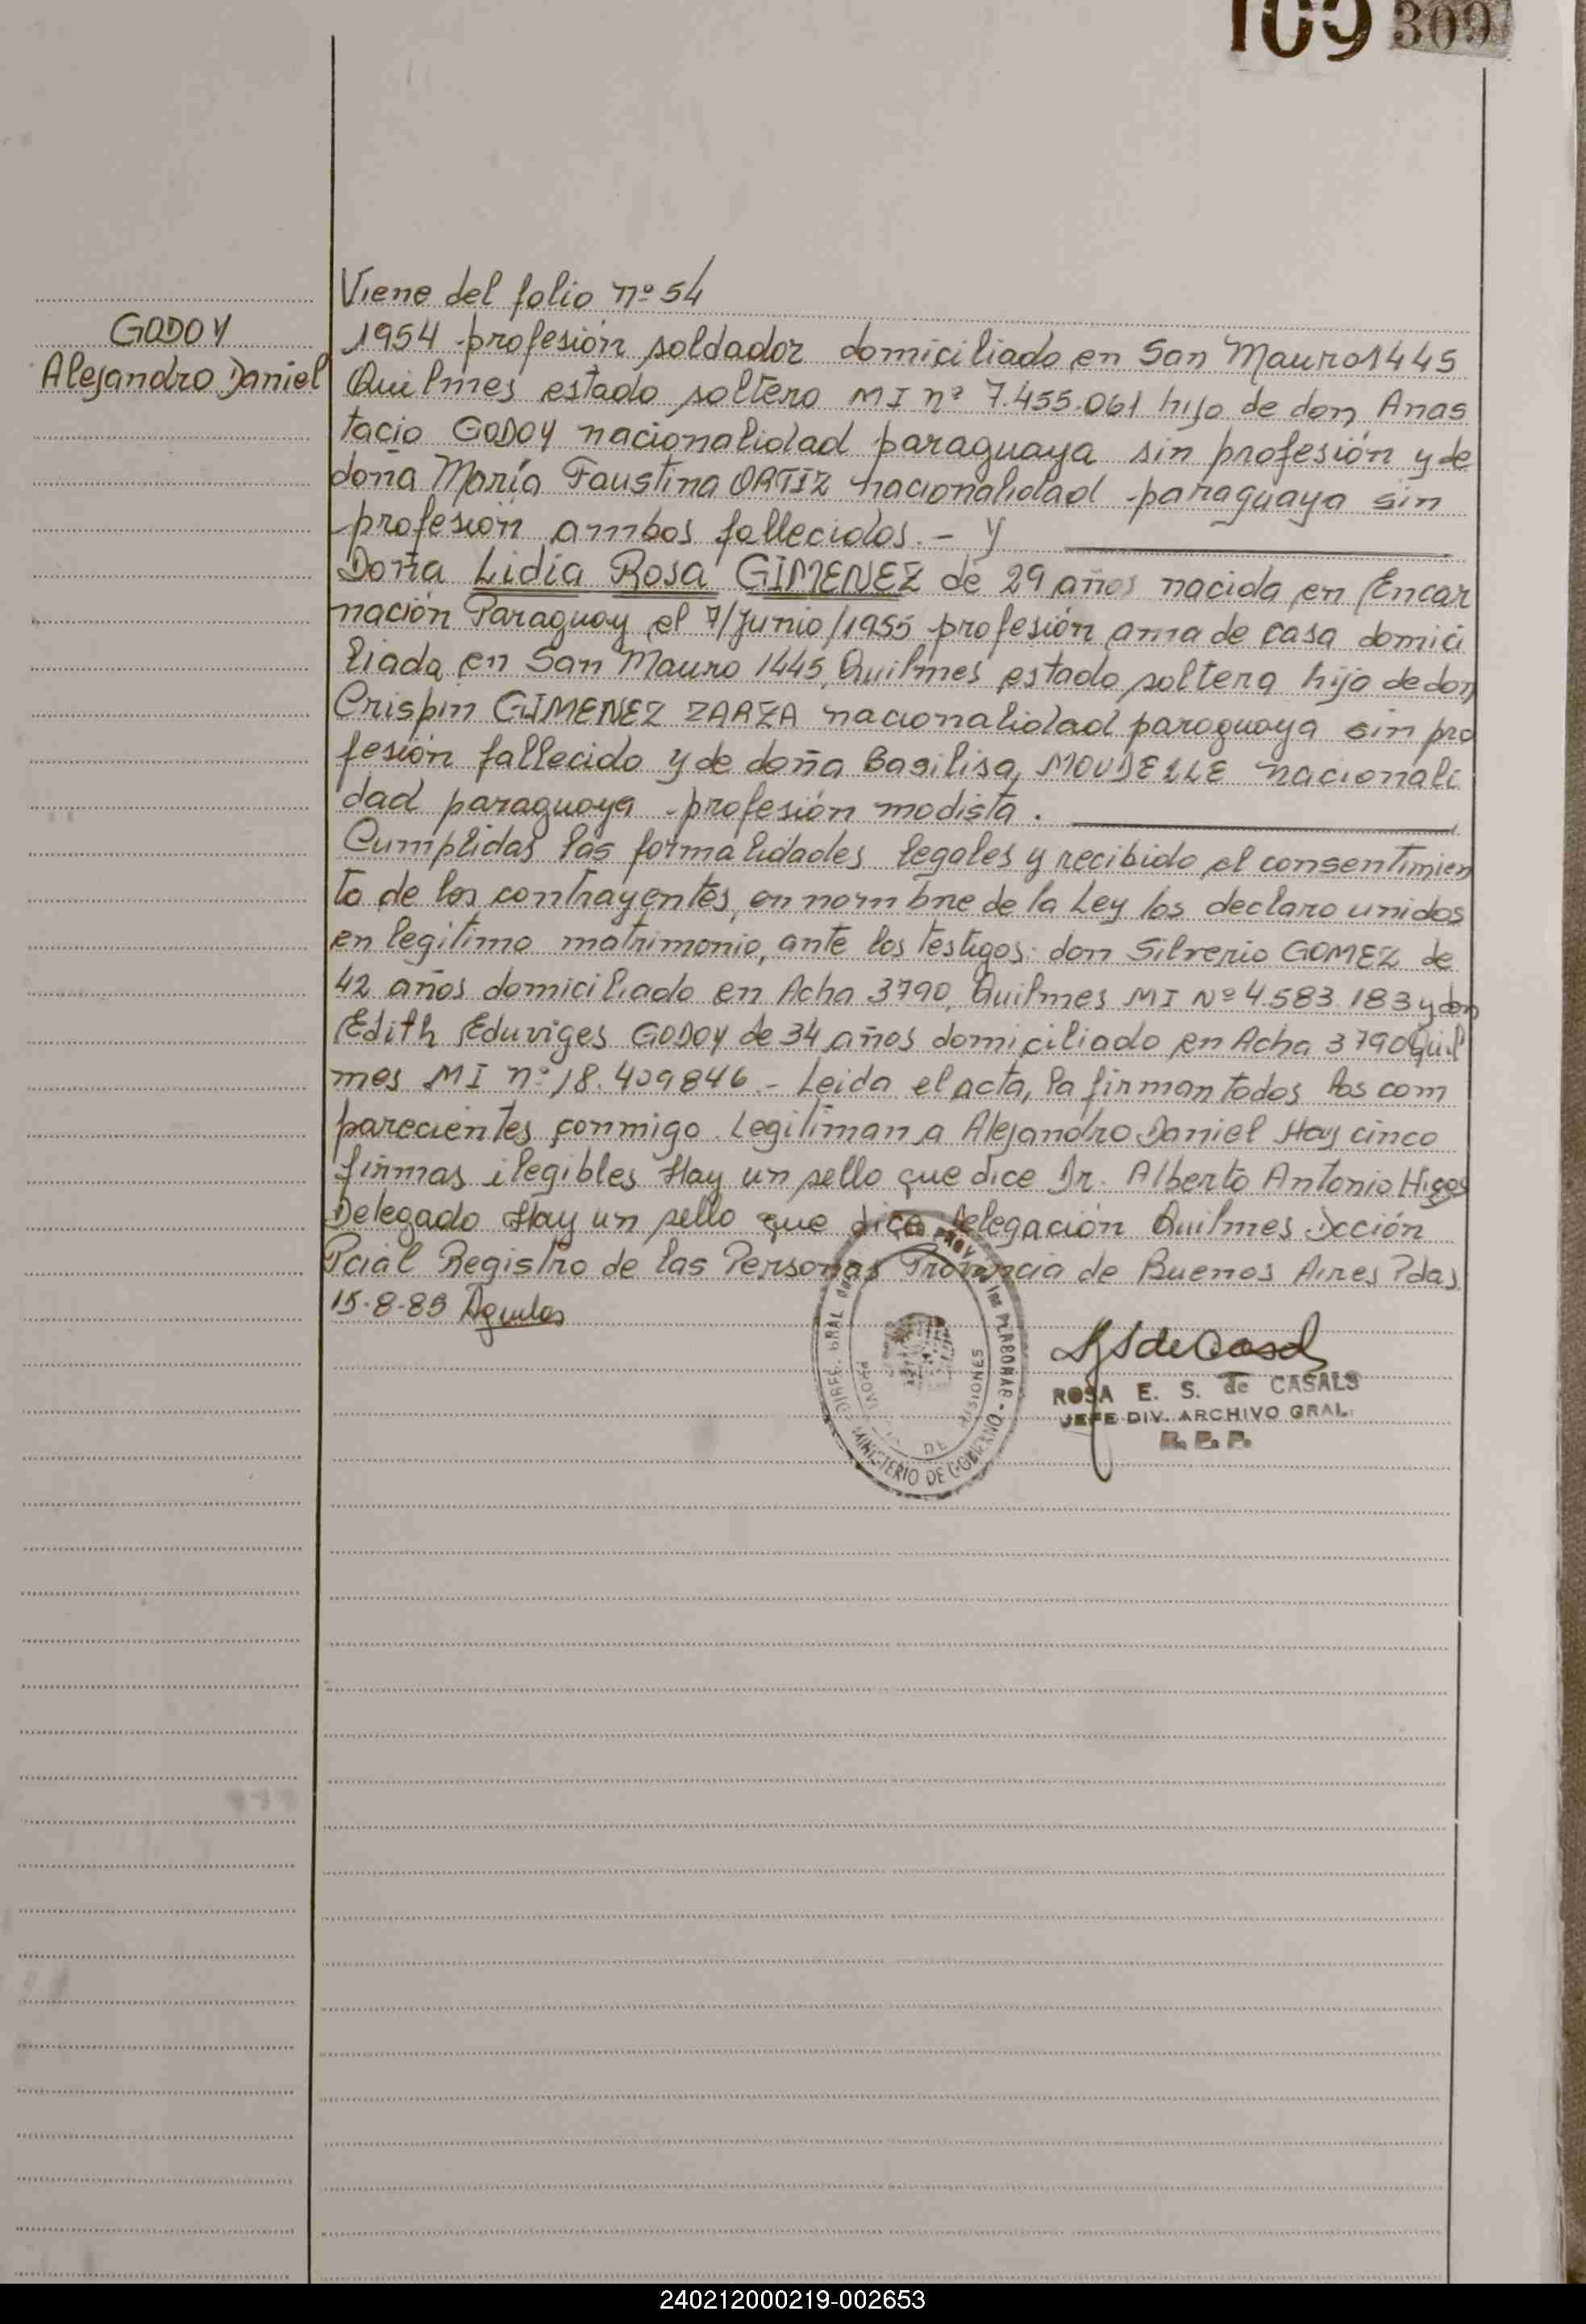 109 309
Viene del folio nº 54
GODOY
Alejandro Daniel
1954 profesión soldador domiciliado en San Mauro 1445
Quilmes estado soltero MI nº 7.455.061 hijo de don Anas
tacio GODOY nacionalidad paraguaya sin profesión y de
doña María Faustina ORTIZ nacionalidad paraguaya sin
profesión ambos fallecidos. - y
Doña Lidia Rosa GIMENEZ de 29 años nacida en Encar
nación Paraguay el 7/Junio/1955 profesión ama de casa domici
liada en San Mauro 1445, Quilmes estado soltera hija de don
Crispin GIMENEZ ZARZA nacionalidad paraguaya sin pro
fesión fallecido y de doña Basilisa MOUDELLE nacionali
dad paraguaya profesión modista.
Cumplidas las formalidades legales y recibido el consentimien
to de los contrayentes, en nombre de la Ley los declaro unidos
en legitimo matrimonio, ante los testigos: don Silverio GOMEZ de
42 años domiciliado en Acha 3790, Quilmes MI Nº 4.583.183 y don
Edith Eduviges GODOY de 34 años domiciliado en Acha 3790 Quil
mes MI nº 18.409846 - Leida el acta, la firman todos los com
parecientes conmigo. Legitiman a Alejandro Daniel Hay cinco
firmas ilegibles Hay un sello que dice Dr. Alberto Antonio
Delegado Hay un sello que dice Delegación Quilmes Dcción
Pcial Registro de las Personas Provincia de Buenos Aires Pdas
15-8-85
ROSA E. S. de CASALS
JEFE DIV. ARCHIVO GRAL.
R. P. P.
MINISTERIO DE GOBIERNO
DE MISIONES
240212000219-002653